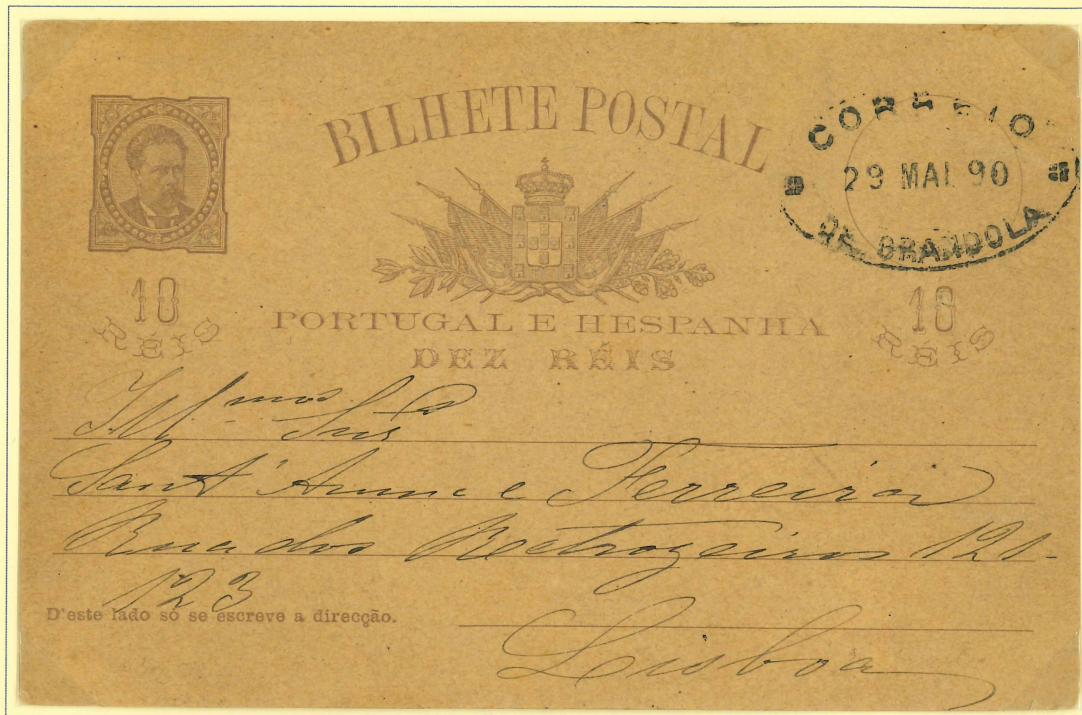 BILHETE POSTAL
CORREIO
29 MAI 90
DE GRANDOLA
10
RÉIS
PORTUGAL E HESPANHA
DEZ RÉIS
10
RÉIS
Ill.mos Snrs
Sant'Anna e Ferreira
Rua dos Retrozeiros 121-
123
D'este lado só se escreve a direcção.
Lisboa